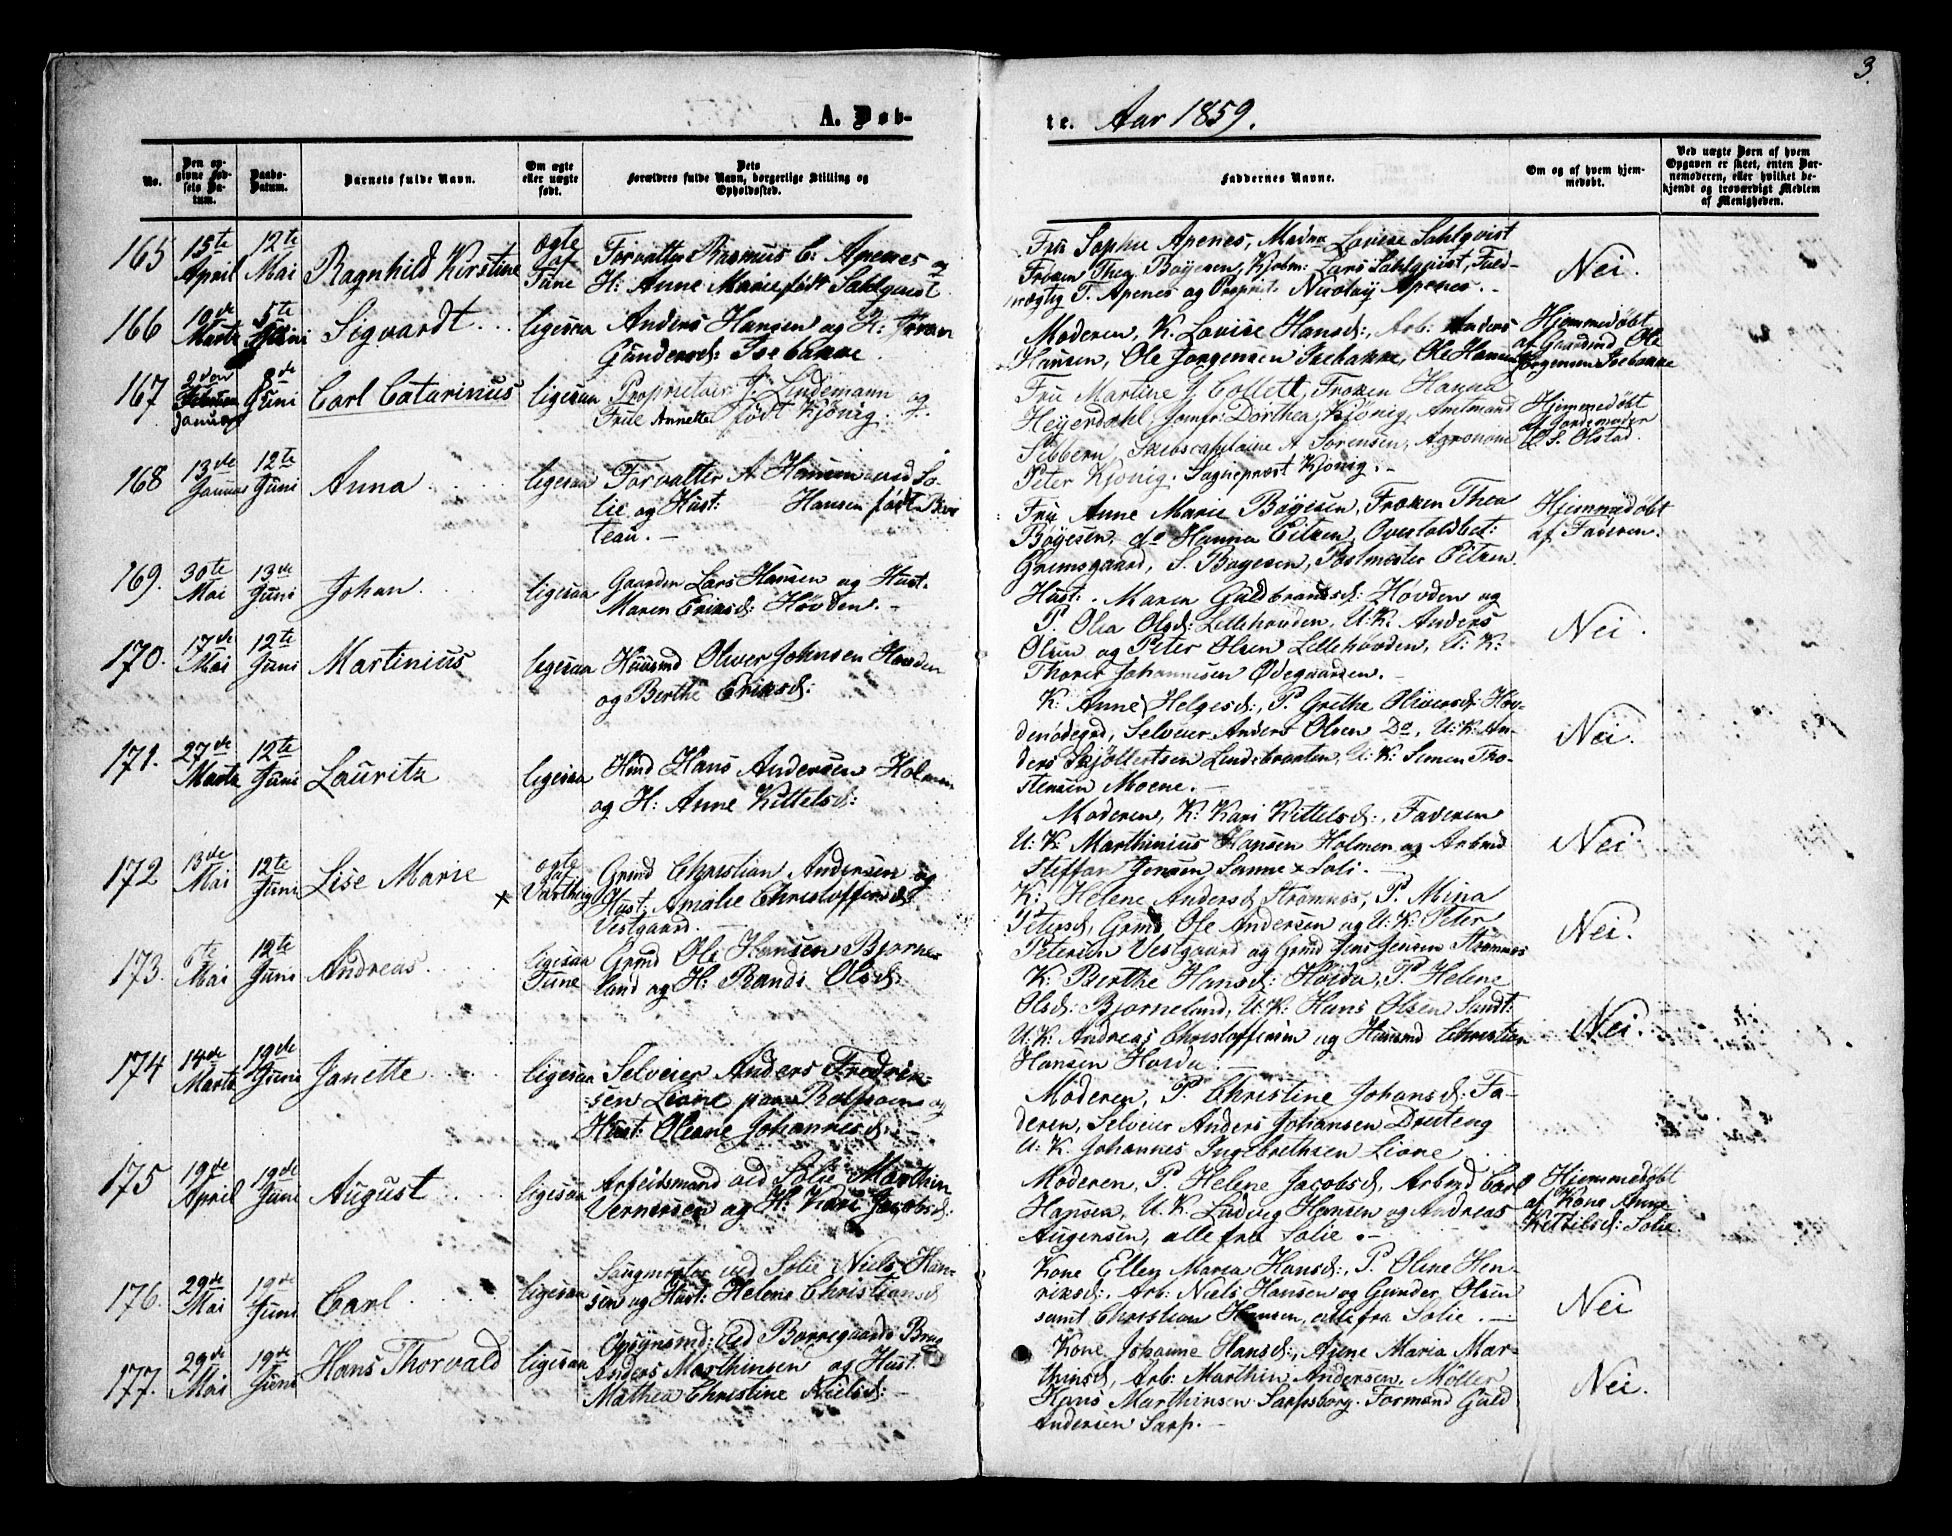 3.
A. Døb-
te. Aar 1859.
No.
Den opgivne Fødsels Datum.
Daabs-Datum.
Barnets fulde Navn.
Om ægte eller uægte født.
Dets Forældres fulde Navn, borgerlige Stilling og Opholdssted.
Faddernes Navne.
Om og af hvem hjemmedøbt.
Ved uægte Børn af hvem Opgaven er skeet, enten Barnemoderen, eller hvilket bekjendt og troværdigt Medlem af Menigheden.
165 15te April 12te Mai Ragnhild Kirstine Ægte af Tune
Forvalter Rasmus C: Apenes og
H: Anne Marie født Sahlqvist
Fru Sophie Apenes, Madm Lovise Sahlqvist
Frøken Thea Bøyesen, Kjøbm: Lars Sahlqvist, Fuld-
mægtig T. Apenes og Proprit. Nicolay Apenes.
Nei.
166 10de Marts 5te Juni Sigvardt ligesaa
Anders Hansen og H:
Gundersd: Isebakke
Moderen, K. Lovise Hansd:, Arb: Anders
Hansen, Ole Jørgensen Isebakke, Ole Hansen
Hjemmedøbt
af Gaardmd Ole
Jørgensen Isebakke
167 2den Januar 8de Juni Carl Catarinus ligesaa
Proprietair J. Lindemann og
Frue Annette født Kjønig.
Fru Martine J Collett, Frøken Hanna
Heyerdahl, Jomfr: Dorthea Kjønig, Amtmand
Sibbern, Skibscapitaine A Sørensen, Agronom
Peter Kjønig. Sognepræst Kjønig.
Hjemmedøbt
af Jordemoder
S. Olstad.
168 13de Januar 12te Juni Anna ligesaa
Forvalter A Hansen ved So-
lie og Hust: Hansen født
teau.
Fru Anne Marie Bøyesen, Frøken Thea
Bøyesen, do Hanna Eitzen, Overtoldbet:
Grimsgaard, S. Bøyesen, Postmester Eitzen
Hjemmedøbt
af Faderen.
169. 30te Mai 13de Juni Johan ligesaa
Gaardm Lars Hansen og Hust.
Maren Eriksd: Hovden.
Hust: Maren Guldbrandsd: Hovden og
P. Olia Olsd: Lillehovden, U.K. Anders
Olsen og Peter Olsen Lillehovden, U: K:
Thorer Johannesen Ødegaarden.
Nei.
170. 17de Mai 12te Juni Martinius ligesaa
Huusmd Oliver Johnsen Hovden
og Berthe Eriksd:
K: Anne Helgesd:, P. Grethe Oliversd: Hov-
denødegrd, Selveier Anders Olsen Do, U: K: An-
ders Skjøllertsen Lundebraaten, U: K: Simen Tho-
stensen Moene.
Nei.
171. 27de Marts 12te Juni Lauritz ligesaa
Hmd Hans Andersen Holmen
og H: Anne Kittelsd:
Moderen, K: Kari Kittelsd:, Faderen
U: K: Marthinius Hansen Holmen og Arbmd
Steffan Jensen Sanne x Soli.
Nei
172 13de Mai 12te Juni Lise Marie x ægte af Varteig
Grmd Christian Andersen og
Hust: Amalie Christoffersd
Vestgaard.
K: Helene Andersd Strømnes, P. Mina
Petersd, Grmd Ole Andersen og U: K: Peter
Petersen Vestgaard og Grmd Jens Jensen Strømnes
Nei.
173. 6te Mai 12te Juni Andreas ligesaa Tune
Grmd Ole Hansen Bjørne-
land og H: Randi Olsd:
K: Berthe Hansd: Hovda, P. Helene
Olsd: Bjørneland, U: K: Hans Olsen Sundt:
U: K: Andreas Christoffersen og Huusmd Christian
Hansen Hovda
Nei.
174 14de Marts 19de Juni Janette ligesaa
Selveier Anders Fredrik-
sen Lione paa Rolfsøen og
Hust: Oleane Johannesd:
Moderen, P. Christine Johansd: Fa-
deren, Selveier Anders Johansen Dreteng
U: K. Johannes Ingebrethsen Lione
175 19de April 19de Juni August ligesaa
Arbeidsmand ved Solie Marthin
Vernersen og H: Kari Jacobsd:
Moderen, P. Helene Jacobsd, Arbmd Carl
Hansen, U. K. Ludvig Hansen og Andreas
Augensen, alle fra Solie.
Hjemmedøbt
af Kone Anne
Kittilsd: Solie.
176. 29de Mai 19de Juni Carl ligesaa
Saugmester ved Solie Niels Han-
sen og Hust: Helene Christiansd
Kone Ellen Maria Hansd:, P. Oline Hen-
riksd:, Arb: Niels Hansen og Gunder Olsen
samt Christian Hansen, alle fra Solie.
Nei
177. 29de Mai 19de Juni Hans Thorvald ligesaa
Opsynsmd: ved Borregaards Brug
Anders Marthinsen og Hust.
Mathea Christine Nielsd:
Kone Johanne Hansd:, Anne Maria Mar-
thinsd, Arb: Marthin Andersen, Møller
Hans Marthinsen Sarpsborg. Formand Guld
Andersen Sarp.
Nei.